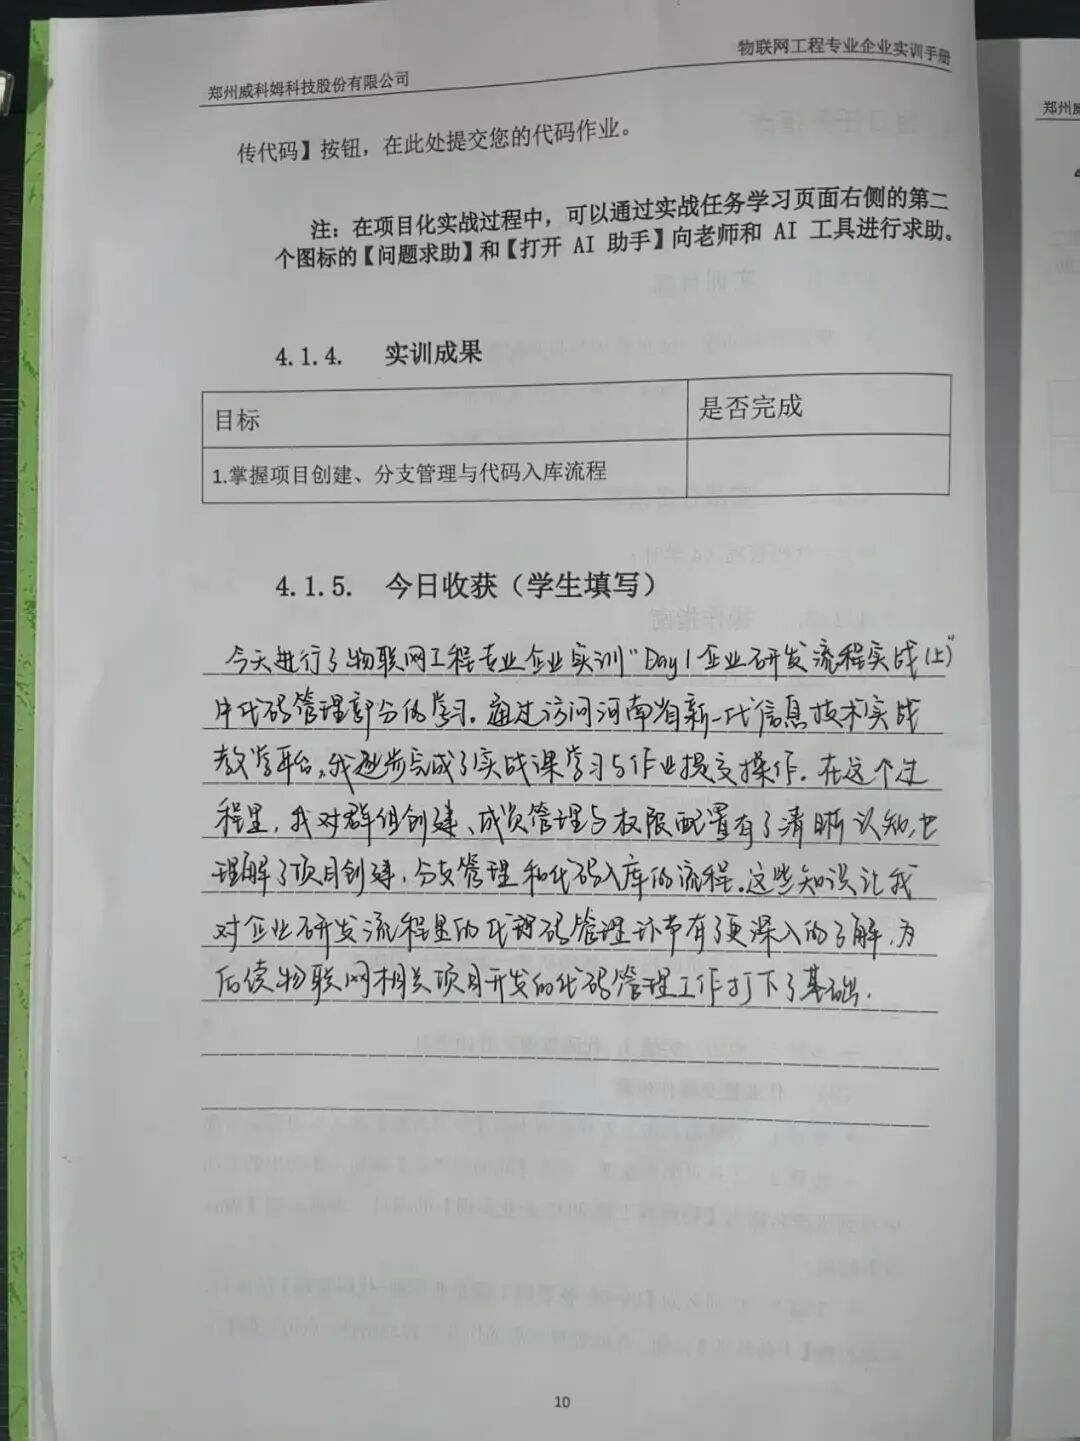 郑州威科姆科技股份有限公司
物联网工程专业企业实训手册
传代码】按钮，在此处提交您的代码作业。
注：在项目化实战过程中，可以通过实战任务学习页面右侧的第二
个图标的【问题求助】和【打开 AI 助手】向老师和 AI 工具进行求助。
4.1.4. 实训成果
目标 是否完成
1.掌握项目创建、分支管理与代码入库流程
4.1.5. 今日收获（学生填写）
今天进行了物联网工程专业企业实训“Day1企业研发流程实战(上)”
中代码管理部分的学习。通过访问河南省新一代信息技术实战
教学平台，我逐步完成了实战课学习与作业提交操作。在这个过
程里，我对群组创建、成员管理与权限配置有了清晰认知，也
理解了项目创建，分支管理和代码入库的流程。这些知识让我
对企业研发流程里的代码管理环节有了更深入的了解，为
后续物联网相关项目开发的代码管理工作打下了基础.
10
郑州威